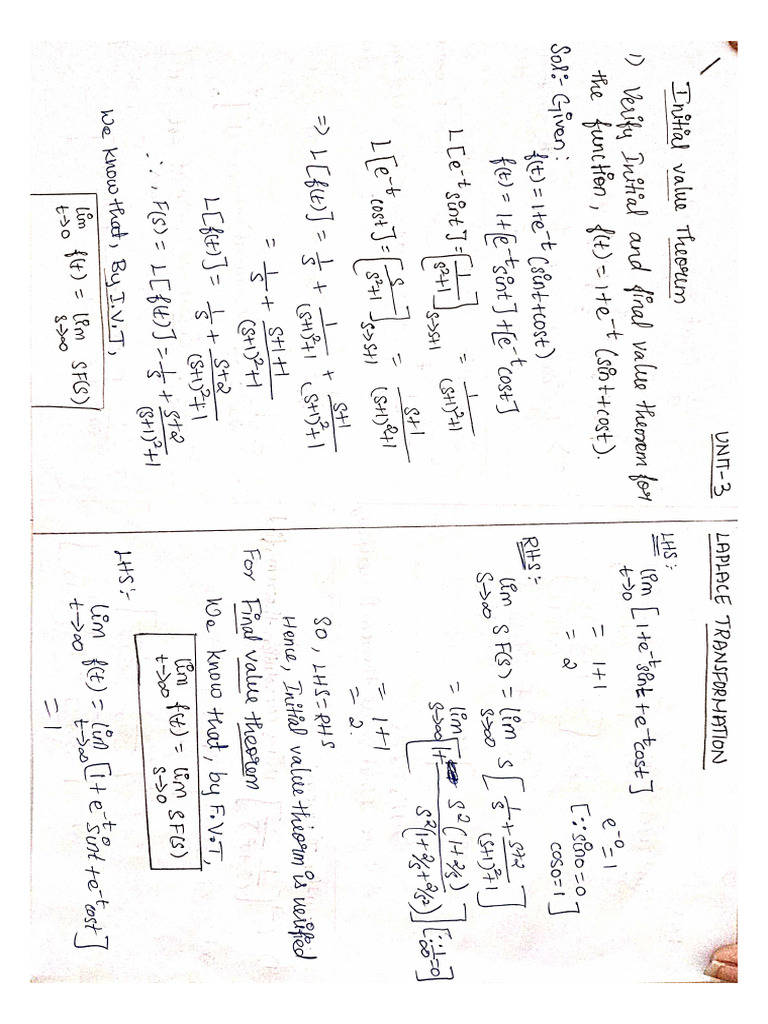 UNIT-3
LAPLACE TRANSFORMATION
Initial value Theorem
1) Verify Initial and final value theorem for
the function, f(t) = 1+e^-t (sint+cost).
Sol:- Given:
f(t) = 1+e^-t (sint+cost)
f(t) = 1+[e^-t sint]+[e^-t cost]
L[e^-t sint] = [1/s²+1]s→s+1 = 1/(s+1)²+1
L[e^-t cost] = [s/s²+1]s→s+1 = s+1/(s+1)²+1
=> L[f(t)] = 1/s + 1/(s+1)²+1 + s+1/(s+1)²+1
= 1/s + s+1+1/(s+1)²+1
L[f(t)] = 1/s + s+2/(s+1)²+1
∴, F(s) = L[f(t)] = 1/s + s+2/(s+1)²+1
We know that, By I.V.T,
lim t→0 f(t) = lim s→∞ SF(S)
LHS: lim t→0 [1+e^-t sint+e^-t cost]
= 1+1
= 2
e^-0 = 1
[∵ sin0 = 0
cos0 = 1]
RHS:
lim s→∞ S F(S) = lim s→∞ S [1/s + s+2/(s+1)²+1]
= lim s→∞ [1+ s²(1+2/s)/s²(1+2/s+2/s²)] [∵ 1/∞ = 0]
= 1+1
= 2.
SO, LHS = RHS
Hence, Initial value theorm is verified
For Final value theorem
We know that, by F.V.T,
lim t→∞ f(t) = lim s→0 SF(S)
LHS:-
lim t→∞ f(t) = lim t→∞ [1+e^-t sint+e^-t cost]
= 1